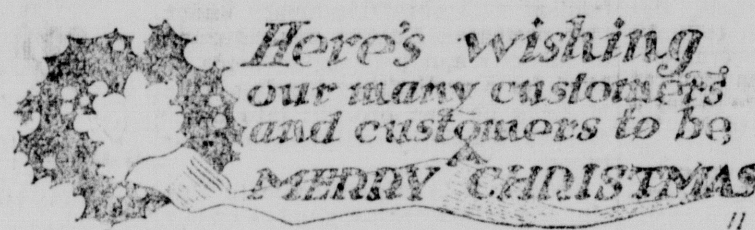 Here's wishing
our many customers
and customers to be
A
MERRY CHRISTMAS